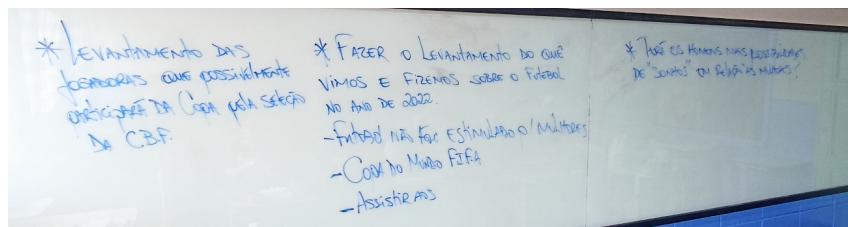 * LEVANTAMENTO DAS
JOGADORAS QUE POSSIVELMENTE
PARTICIPARÃ DA COPA PELA SELEÇÃO
DA C.B.F.
* FAZER O LEVANTAMENTO DO QUE
VIMOS E FIZEMOS SOBRE O FUTEBOL
NO ANO DE 2022.
- FUTEBOL NÃO FOI ESTIMULADO MULHERES
- COPA DO MUNDO FIFA
- ASSISTIR AOS
* OS HOMENS NAS POSSIBILIDADES
DE "SONHOS" EM RELAÇÃO ÀS MULHERES?